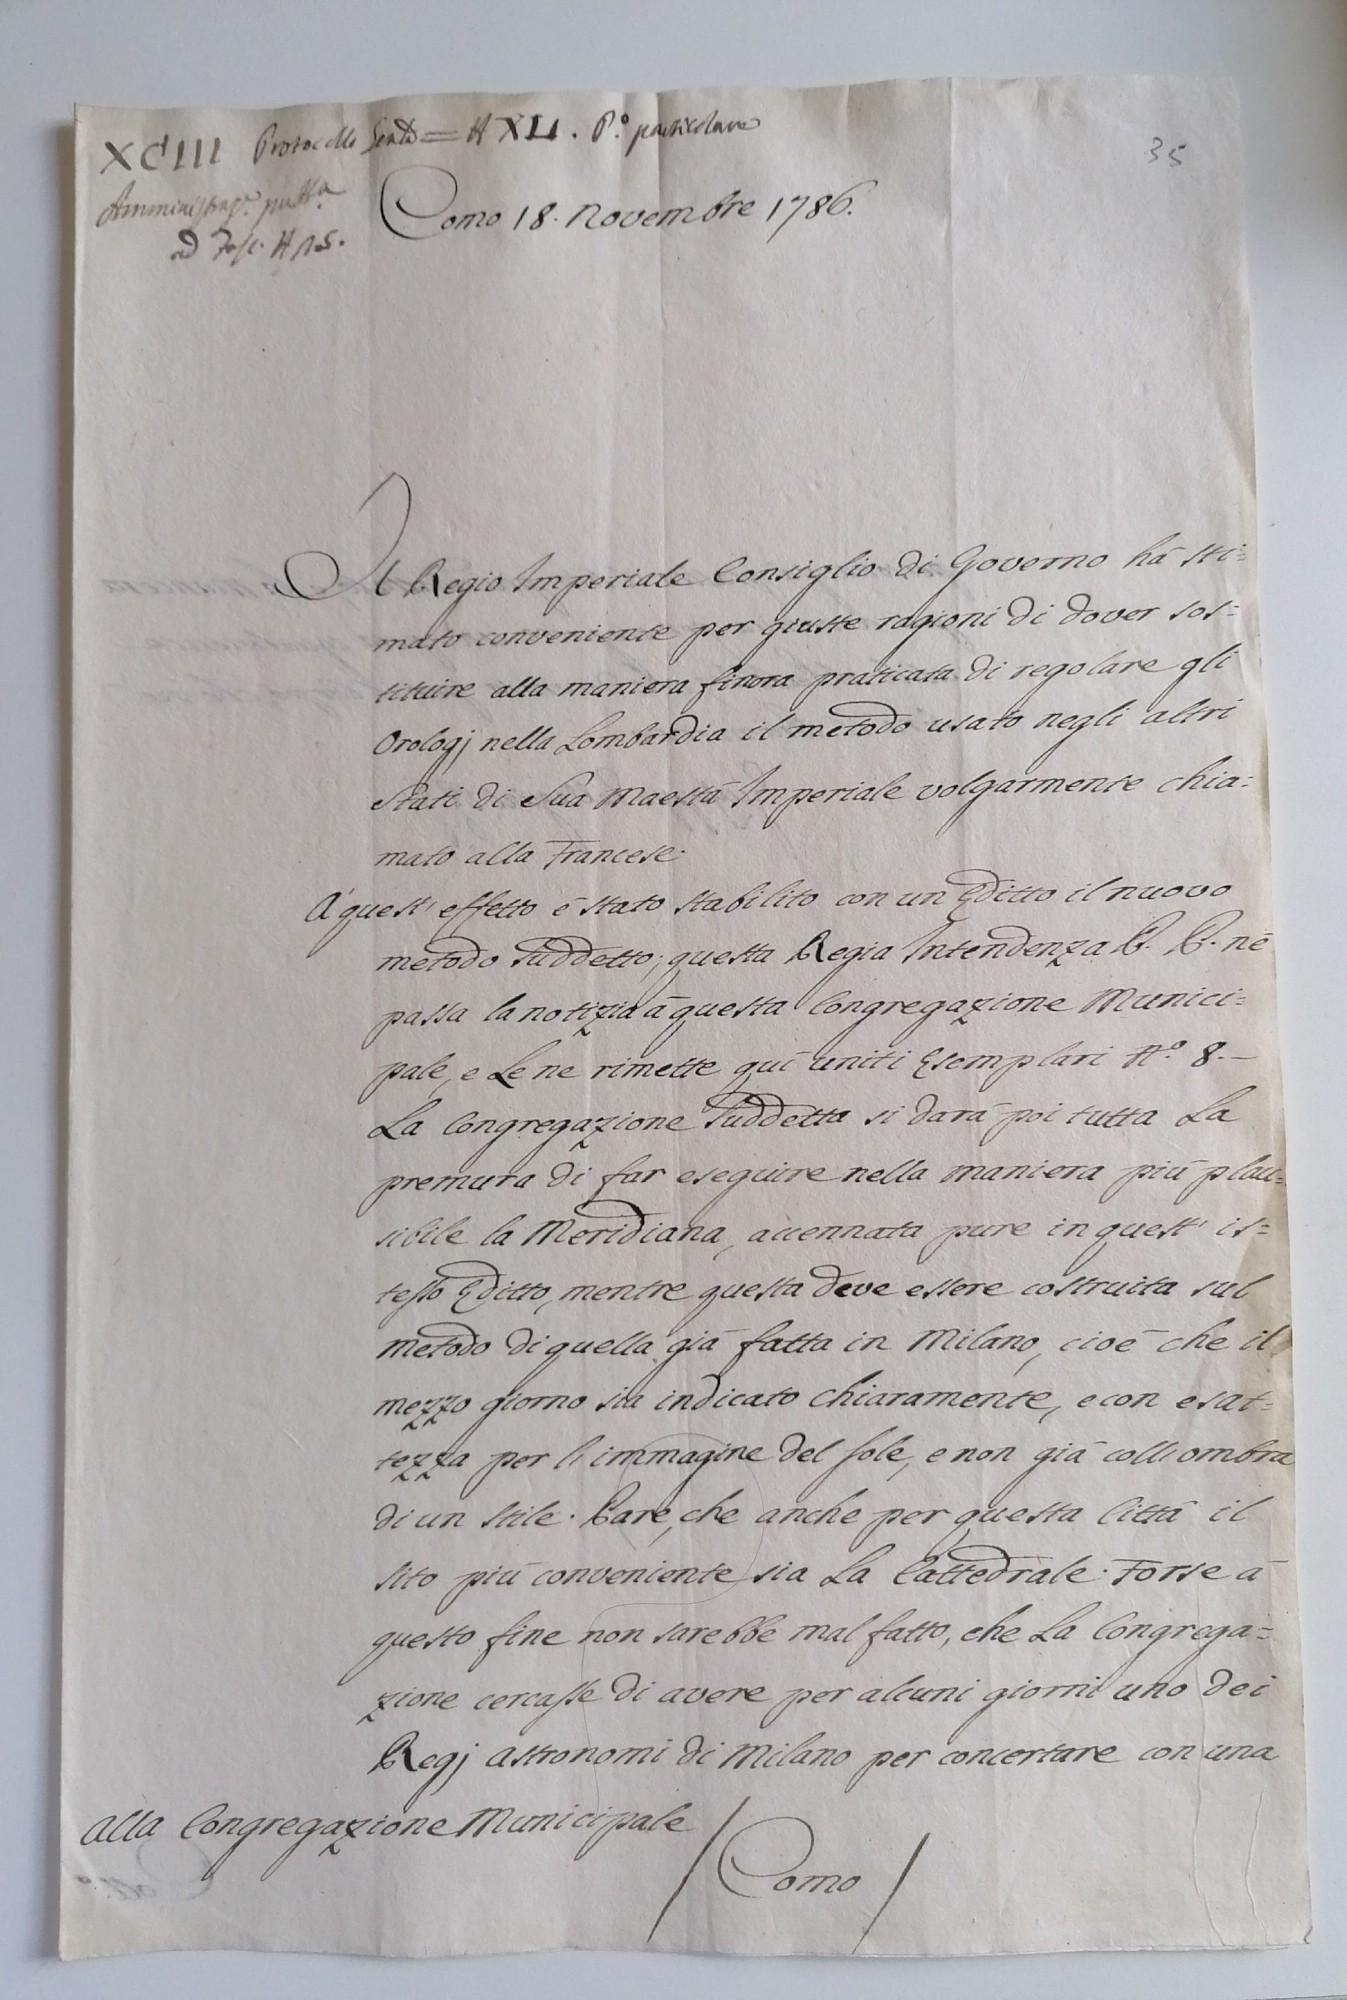 XCIII Protocollo = N XLI. P.º particolare
35
ad Fasc. N 15.
Como 18. Novembre 1786.
Il Regio Imperiale Consiglio di Governo hà sti=
mato conveniente per giuste ragioni di dover sos=
tituire alla maniera finora praticata di regolare gli
Orologj nella Lombardia il metodo usato negli altri
Stati di Sua Maestà Imperiale volgarmente chia=
mato alla Francese.
A quest' effetto è stato stabilito con un Editto il nuovo
metodo suddetto; questa Regia Intendenza P. P. nè
passa la notizia à questa Congregazione Munici=
pale, e Le ne rimette quì uniti Esemplari N.º 8.—
La Congregazione suddetta si darà poi tutta La
premura di far eseguire nella maniera più plau=
sibile la Meridiana, accennata pure in quest' is=
tesso Editto, mentre questa deve essere costruita sul
metodo di quella già fatta in Milano, cioè che il
mezzo giorno sia indicato chiaramente, e con esat=
tezza per l' immagine del Sole, e non già coll' ombra
di un stile. Pare, che anche per questa Città il
sito più conveniente sia La Cattedrale. Forse à
questo fine non sarebbe mal fatto, che La Congrega=
zione cercasse di avere per alcuni giorni uno dei
Regj astronomi di Milano per concertare con una
Alla Congregazione Municipale
/ Como /